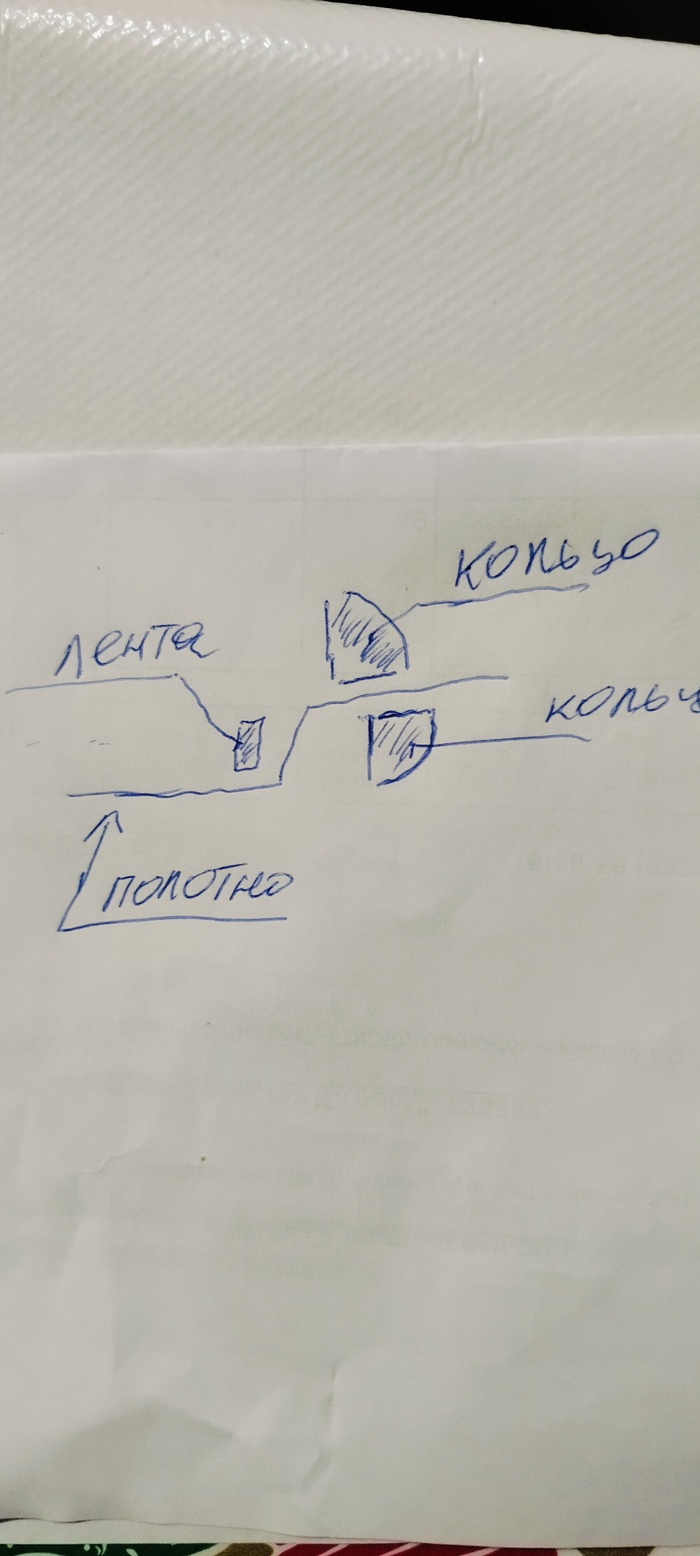 кольцо
лента
кольц
полотно